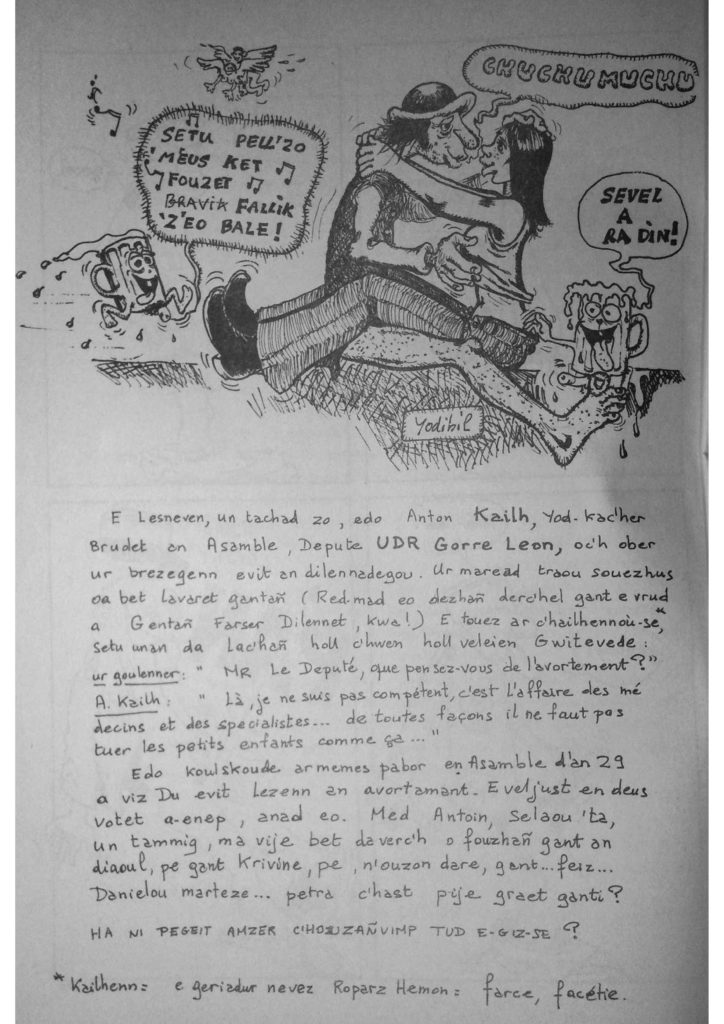 CHUCHUMUCHU
SETU PELL'ZO
'MEUS KET
FOUZET
BRAVIK FALLIK
'Z'EO BALE!
SEVEL
A
RA DIN!
Yodibil
E Lesneven, un tachad zo, edo Anton Kailh, Yod-kac'her
Brudet an Asamble, Depute UDR Gorre Leon, oc'h ober
ur brezegenn evit an dilennadegou. Ur maread traou souezhus
oa bet lavaret gantañ (Red-mad eo dezhañ derc'hel gant e vrud
a Gentañ Farser Dilennet, kwa!) E touez ar c'hailhennoù-se,*
setu unan da Lac'hañ holl c'hwen holl veleien Gwitevede:
ur goulenner: "MR Le Deputé, que pensez-vous de l'avortement?"
A. Kailh: "Là, je ne suis pas compétent, c'est l'affaire des mé
decins et des specialistes... de toutes façons il ne faut pas
tuer les petits enfants comme ça..."
Edo koulskoude ar memes pabor en Asamble d'an 29
a viz Du evit Lezenn an avortamant. Eveljust en deus
votet a-enep, anad eo. Med Antoin, Selaou 'ta,
un tammig, ma vije bet da verc'h o fouzhañ gant an
diaoul, pe gant Krivine, pe, n'ouzon dare, gant... feiz...
Danielou marteze... petra c'hast pije graet ganti?
HA NI PEGEIT AMZER C'HOUZAÑVIMP TUD E-GIZ-SE ?
* Kailhenn = e geriadur nevez Roparz Hemon = farce, facétie.